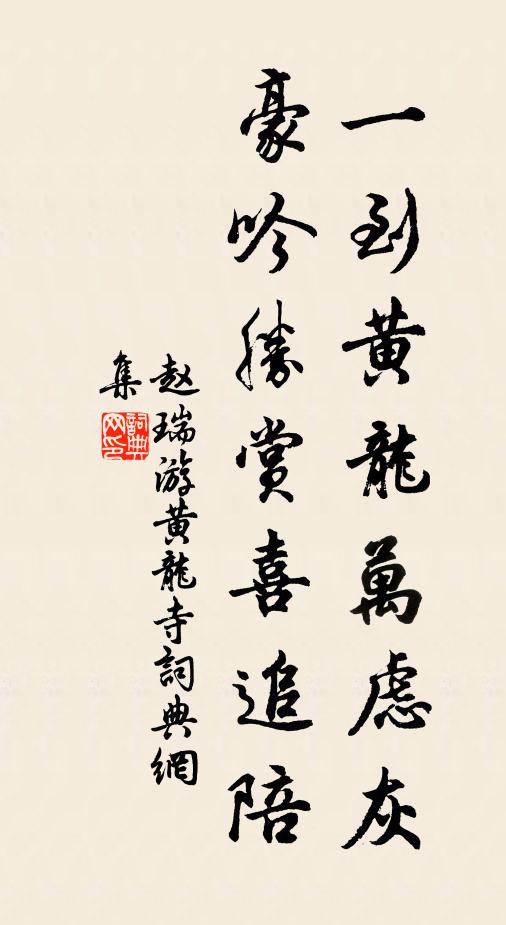 一到黄龍萬慮灰
豪吟勝賞喜追陪
赵瑞游黄龍寺詞典網
集
詞典
网印